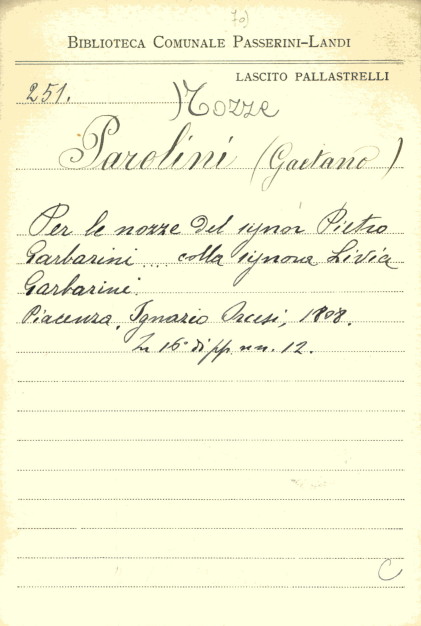 70)
BIBLIOTECA COMUNALE PASSERINI-LANDI
LASCITO PALLASTRELLI
251.
)Nozze
Parolini (Gaetano)
Per le nozze del signor Pietro
Garbarini .... colla signora Livia
Garbarini.
Piacenza, Ignazio Orcesi, 1808.
In 16° di pp. nn. 12.
C